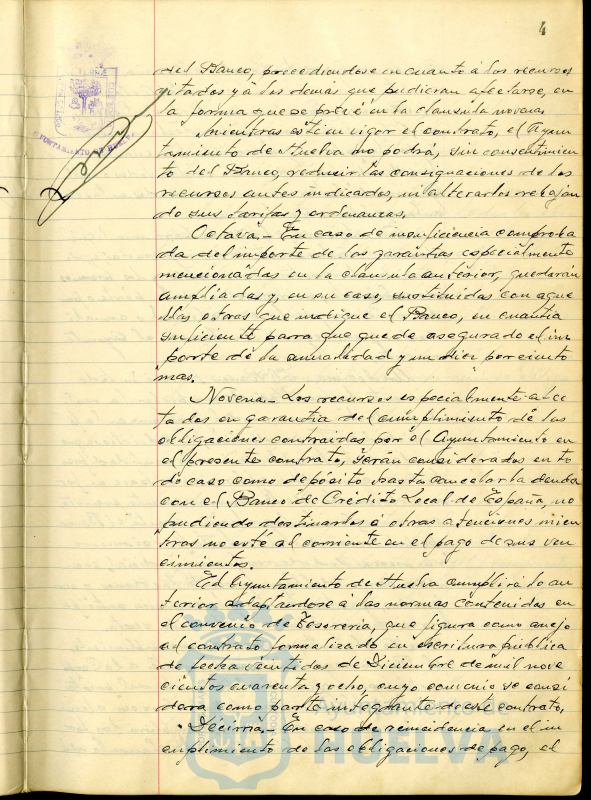 4
del Banco, procediendose en cuanto á los recursos
citados y á los demás que pudieran afectarse, en
la forma que se prevé en la clausula novena.
Mientras esté en vigor el contrato, el Ayun
tamiento de Huelva no podrá, sin consentimien
to del Banco, reducir las consignaciones de los
recursos antes indicados, ni alterarlos rebajan
do sus tarifas y ordenanzas.
Octava.- En caso de insuficiencia comproba
da del importe de las garantias especialmente
mencionadas en la clausula anterior, quedarán
ampliadas y, en su caso, sustituidas con aque
llas otras que indique el Banco, en cuantia
suficiente para que quede asegurado el im
porte de la anualidad y un diez por ciento
mas.
Novena.- Los recursos especialmente afec
tados en garantia del cumplimiento de las
obligaciones contraidas por el Ayuntamiento en
el presente contrato, serán considerados en to
do caso como depósito hasta cancelar la deuda
con el Banco de Crédito Local de España, no
pudiendo destinarlos á otras atenciones mien
tras no esté al corriente en el pago de sus ven
cimientos.
El Ayuntamiento de Huelva cumplirá lo an
terior adaptandose á las normas contenidas en
el convenio de Tesoreria, que figura como anejo
al contrato formalizado en escritura pública
de fecha veintidos de Diciembre de mil nove
cientos cuarenta y ocho, cuyo convenio se consi
dera como parte integrante de este contrato.
Décima.- En caso de reincidencia en el in
cumplimiento de las obligaciones de pago, el
AYUNTAMIENTO DE HUELVA
Ayuntamiento de
HUELVA